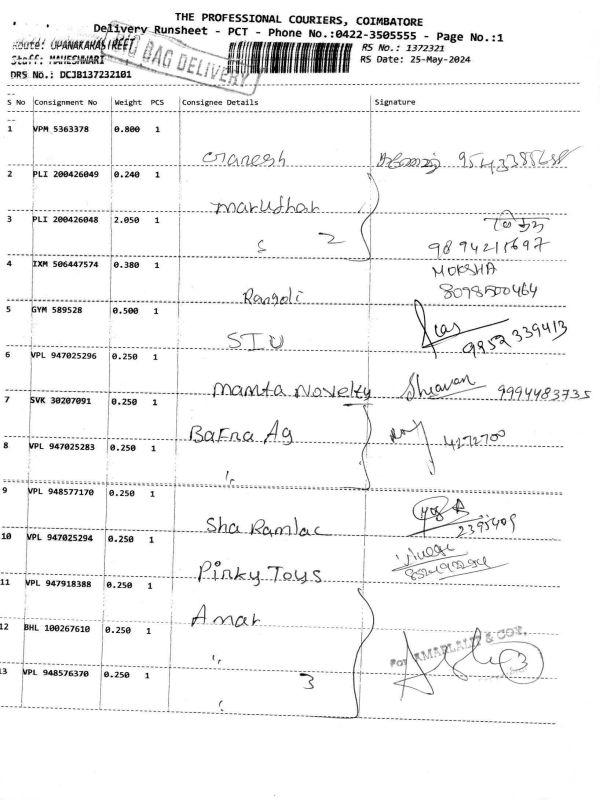 THE PROFESSIONAL COURIERS, COIMBATORE
Delivery Runsheet - PCT - Phone No.:0422-3505555 - Page No.:1
Route: OPANAKARASTREET
BIG BAG DELIVERY
RS No.: 1372321
Staff: MAHESHWARI
RS Date: 25-May-2024
DRS No.: DCJB137232101
S No Consignment No Weight PCS Consignee Details Signature
1 VPM 5363378 0.800 1
Ganesh
2 PLI 200426049 0.240 1
Marudhar
3 PLI 200426048 2.050 1
2 9894215697
4 IXM 506447574 0.380 1 MOKSHA
Rangoli 8098500464
5 GYM 589528 0.500 1
SIU 9952339413
6 VPL 947025296 0.250 1
Mamta Novelty Shravan 9994483735
7 SVK 30207091 0.250 1
Bafna Ag 4272700
8 VPL 947025283 0.250 1
"
9 VPL 948577170 0.250 1
Sha Ramlac 2395409
10 VPL 947025294 0.250 1
Pinky Toys
11 VPL 947918388 0.250 1
Amar
12 BHL 100267610 0.250 1
" For AMARLAL & COY.
13 VPL 948576370 0.250 1
3 3